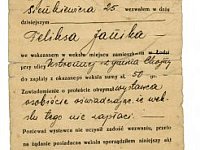 Sienkiewicza 25 wezwałem w dniu
dzisiejszym
Feliksa Janika
we wskazanem w wekslu miejscu zamieszkania w Łodzi
przy ulicy
do zapłaty z okazanego wekslu sumy zł. 50 gr.
Zawiadomienie o proteście otrzymał wystawca
osobiście oświadczając że wek-
slu tego nie zapłaci.
Ponieważ wystawca nie uczynił zadość wezwaniu, przeto
na żądanie posiadacza wekslu sporządziłem niniejszy akt